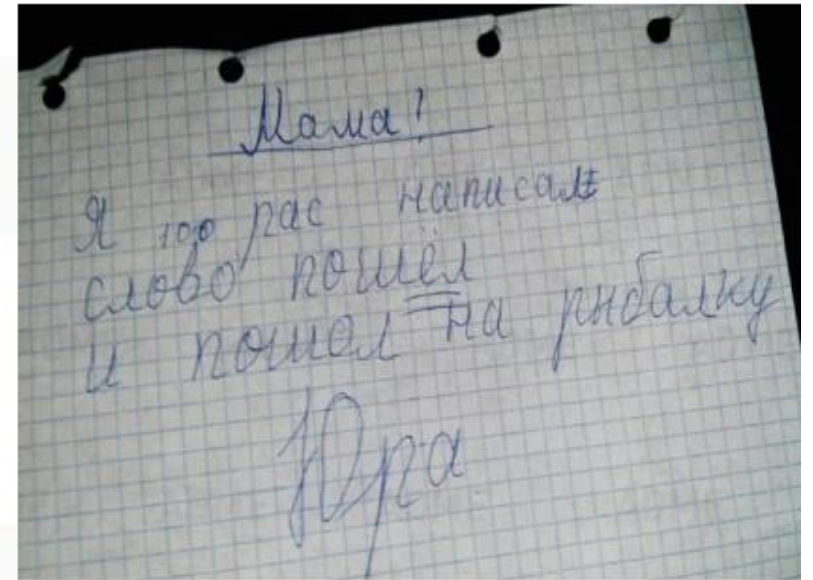 Мама!
Я 100 рас написал
слово пошёл
и пошол на рыбалку
Юра